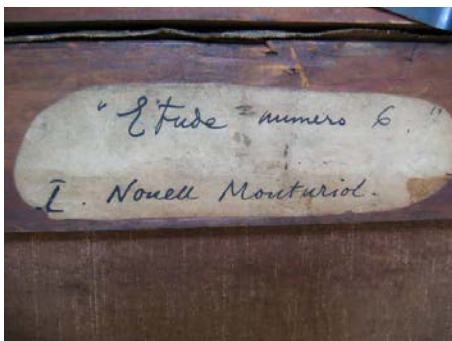 "Etude numero 6."
I. Nonell Monturiol.